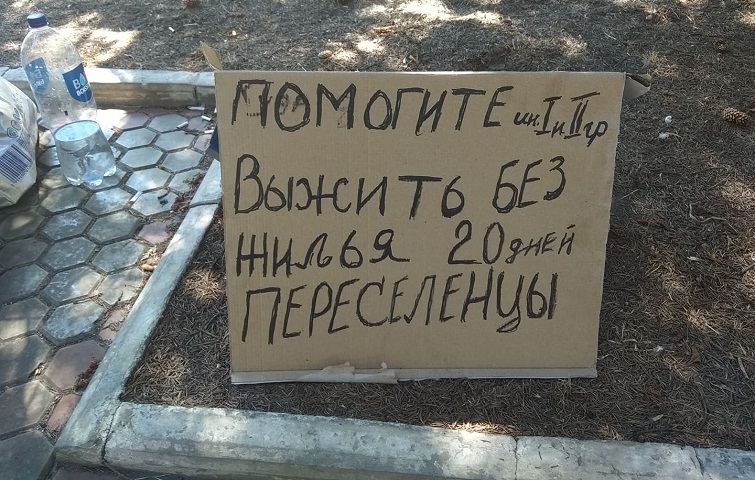 ПОМОГИТЕ ин. I и II гр
ВЫЖИТЬ БЕЗ
ЖИЛЬЯ 20 дней
ПЕРЕСЕЛЕНЦЫ